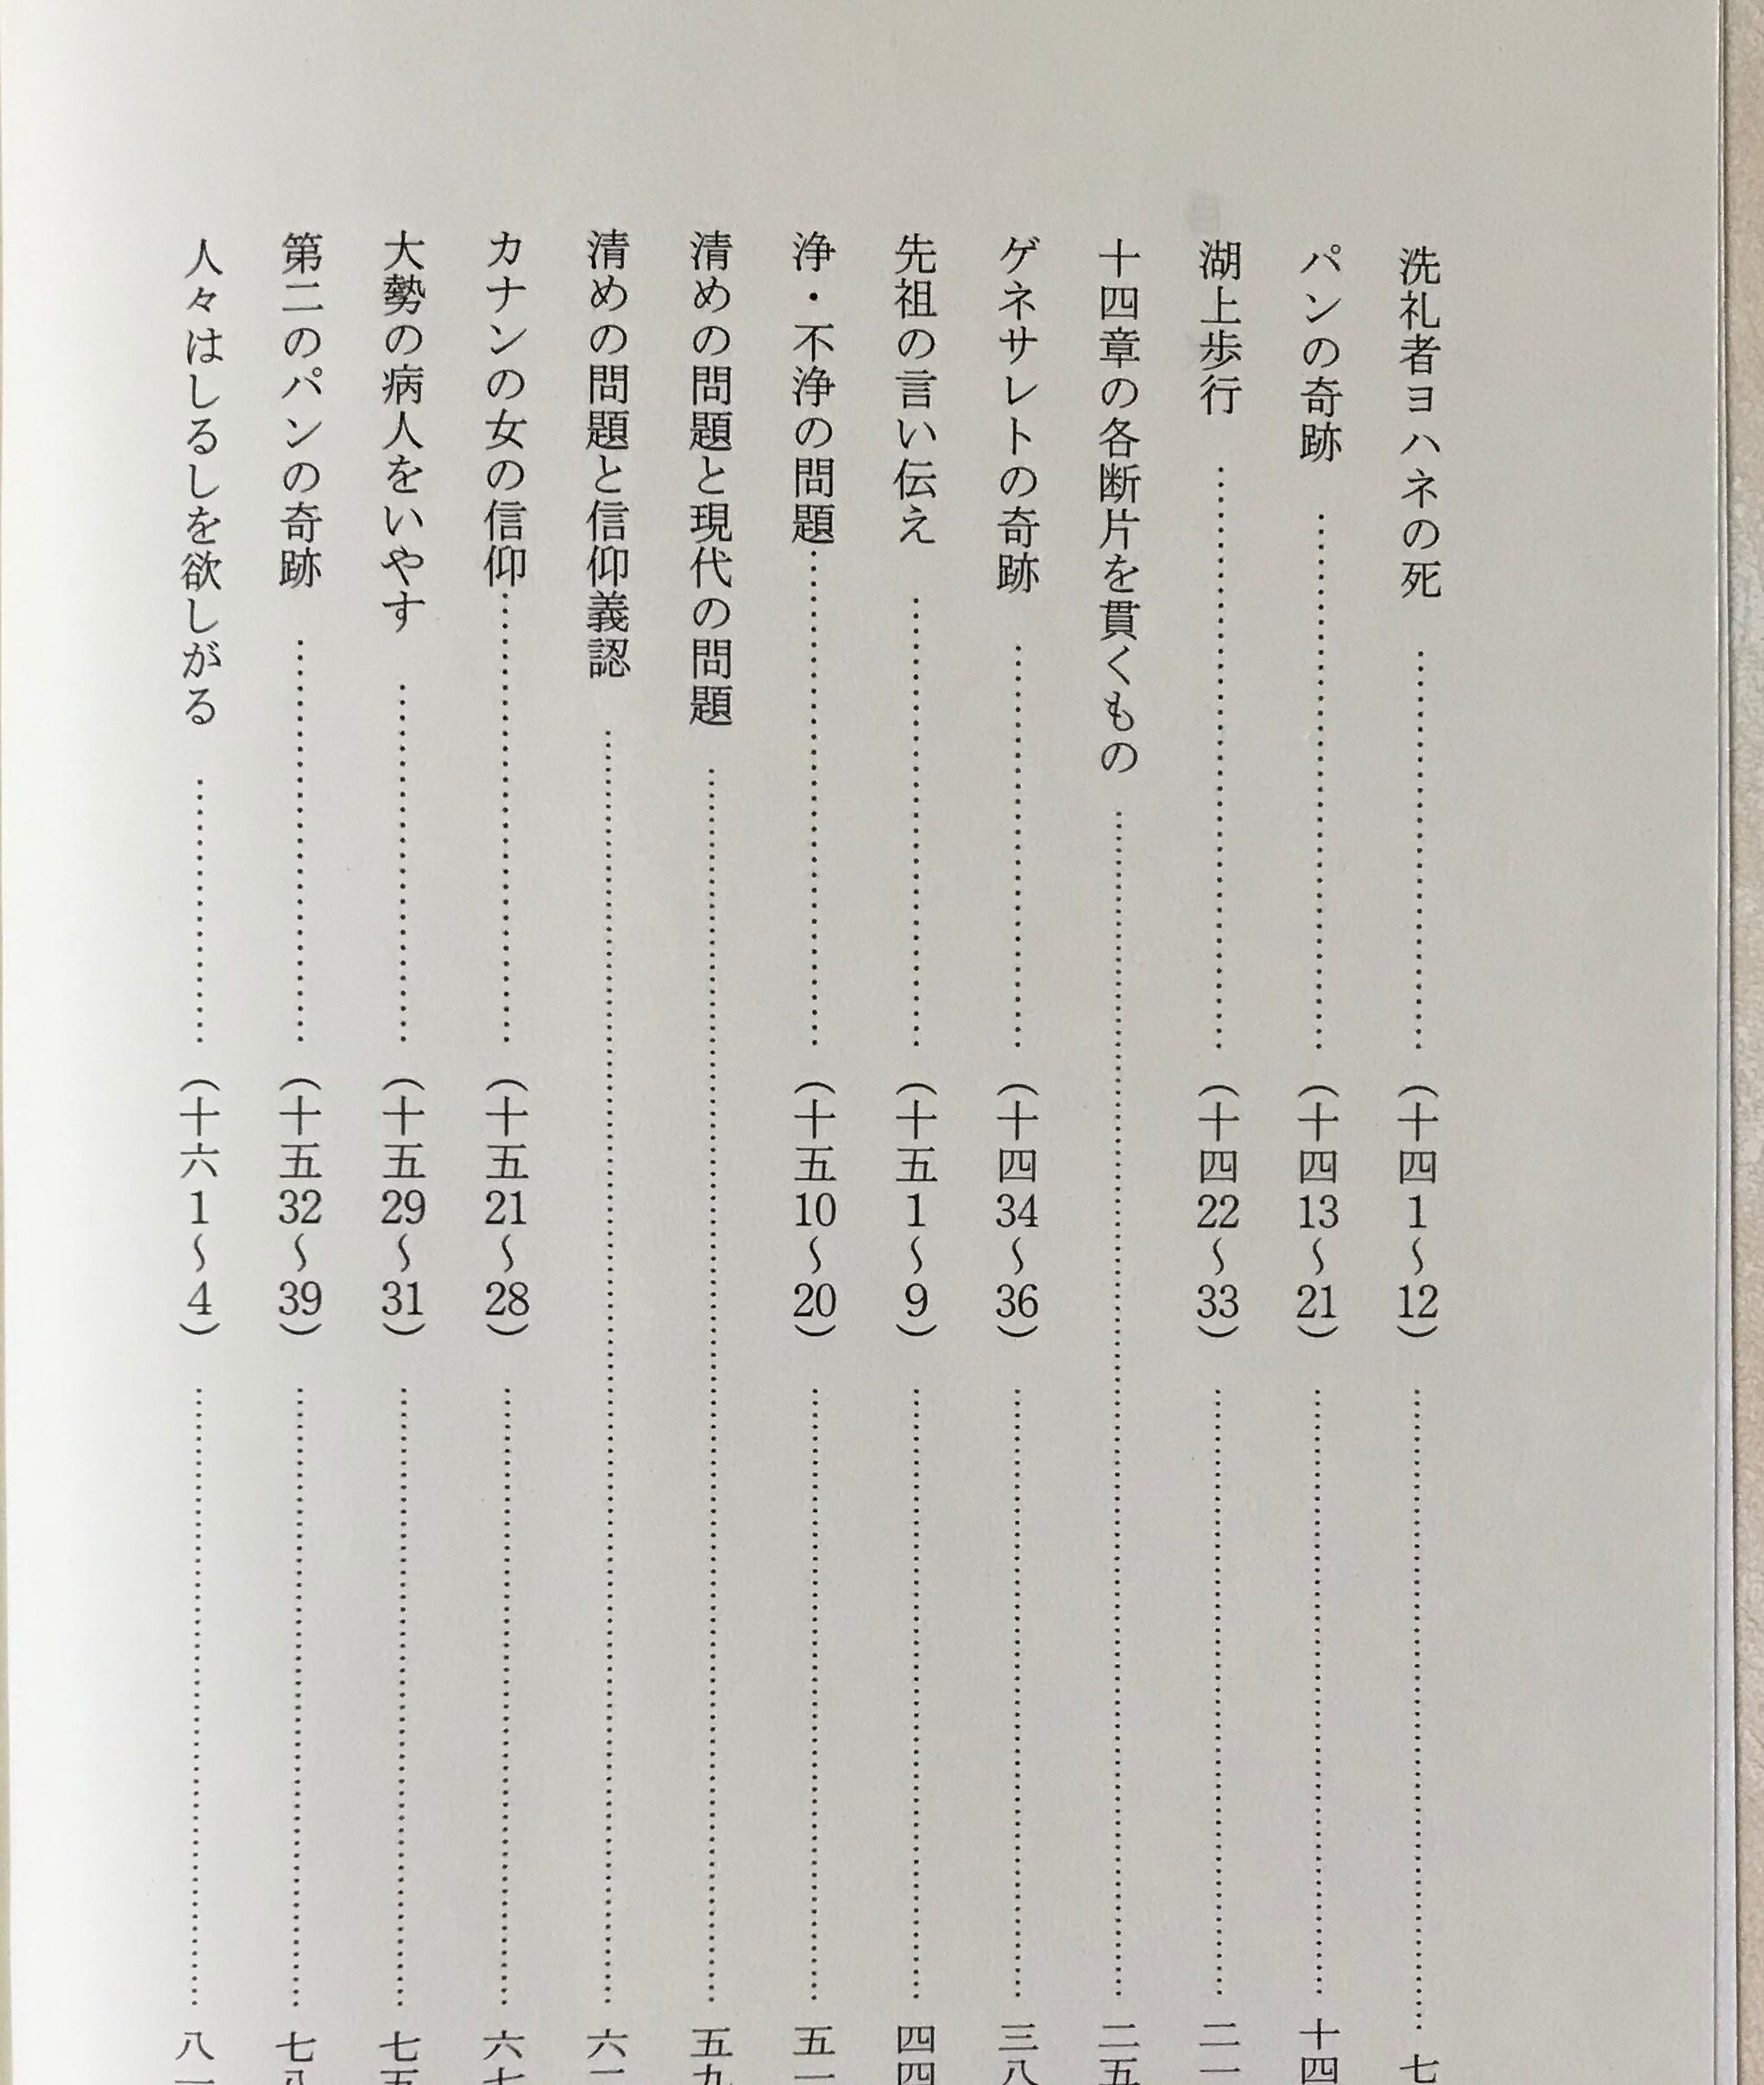 洗礼者ヨハネの死 ……………… (十四1〜12) ……………… 七
パンの奇跡 ……………… (十四13〜21) ……………… 十四
湖上歩行 ……………… (十四22〜33) ……………… 二一
十四章の各断片を貫くもの ……………… 二五
ゲネサレトの奇跡 ……………… (十四34〜36) ……………… 三八
先祖の言い伝え ……………… (十五1〜9) ……………… 四四
浄・不浄の問題 ……………… (十五10〜20) ……………… 五
清めの問題と現代の問題 ……………… 五九
清めの問題と信仰義認 ……………… 六
カナンの女の信仰 ……………… (十五21〜28) ……………… 六七
大勢の病人をいやす ……………… (十五29〜31) ……………… 七五
第二のパンの奇跡 ……………… (十五32〜39) ……………… 七八
人々はしるしを欲しがる ……………… (十六1〜4) ……………… 八